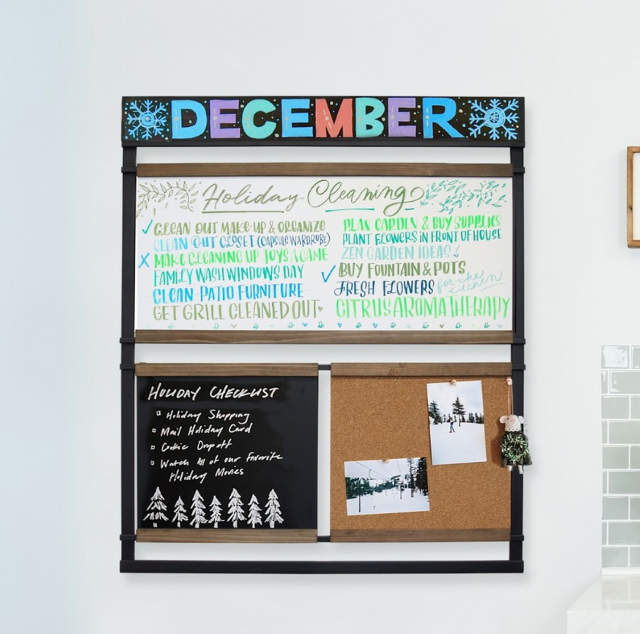 DECEMBER
Holiday Cleaning
✓ CLEAN OUT MAKE-UP & ORGANIZE
CLEAN OUT CLOSET (CAPSULE WARDROBE)
X MAKE CLEANING UP TOYS A GAME
FAMILY WASH WINDOWS DAY
CLEAN PATIO FURNITURE
GET GRILL CLEANED OUT
PLAN GARDEN & BUY SUPPLIES
PLANT FLOWERS IN FRONT OF HOUSE
ZEN GARDEN IDEAS
✓ BUY FOUNTAIN & POTS
FRESH FLOWERS for the kitchen
CITRUS AROMATHERAPY
HOLIDAY CHECKLIST
Holiday Shopping
Mail Holiday Card
Cookie Dropoff
Watch All of our Favorite
Holiday Movies